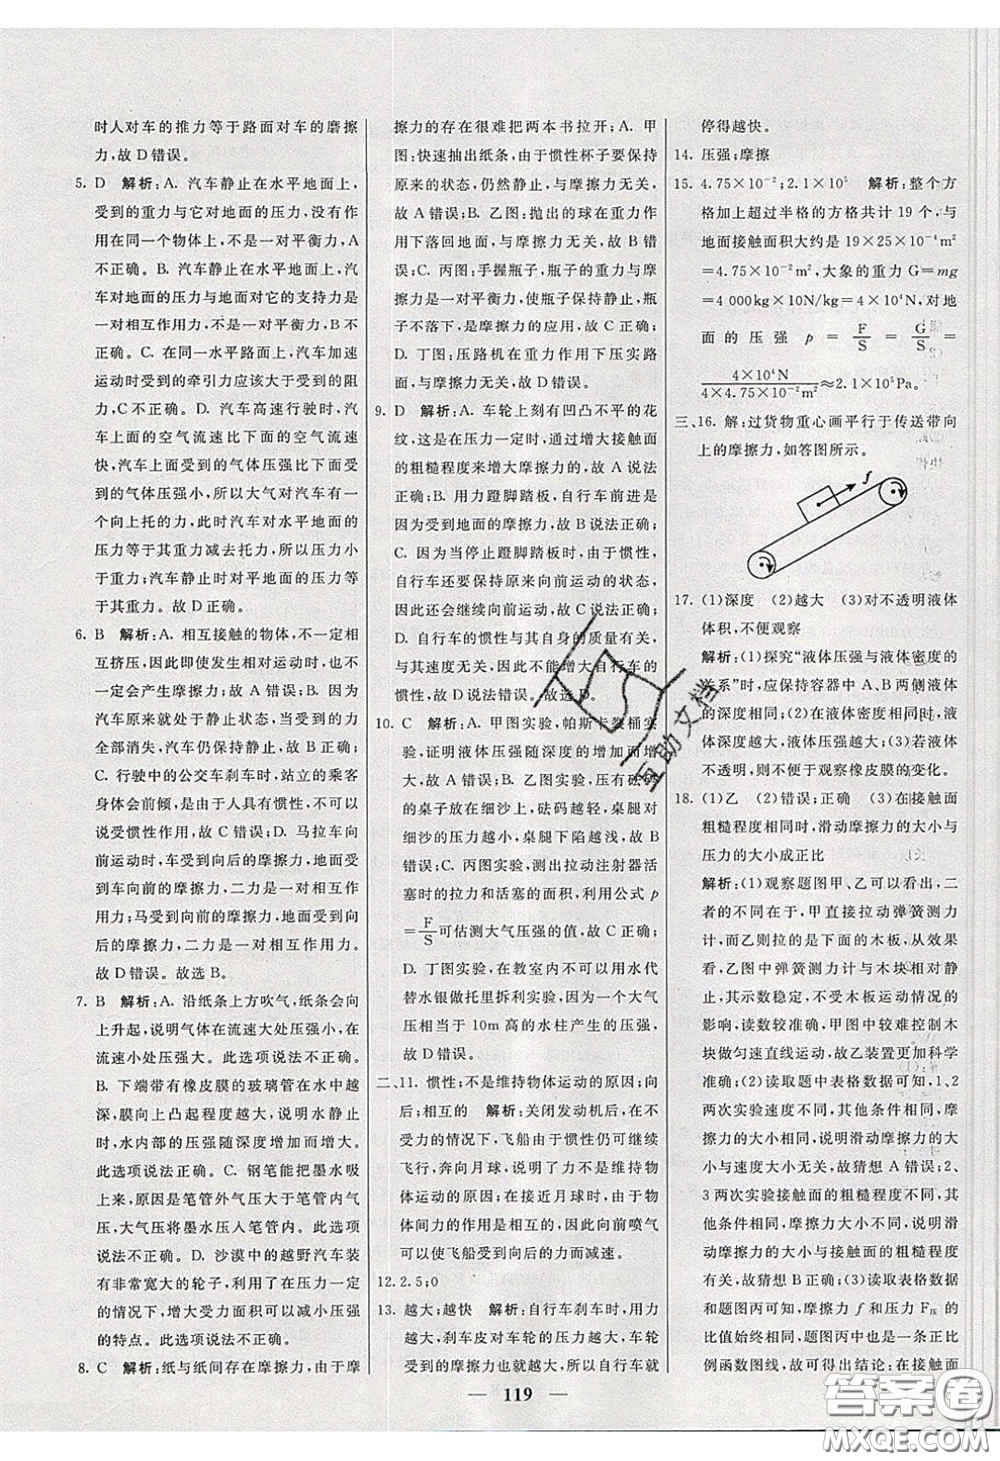 时人对车的推力等于路面对车的磨擦
力,故D错误。
5. D 解析:A. 汽车静止在水平地面上,
受到的重力与它对地面的压力,没有作
用在同一个物体上,不是一对平衡力,A
不正确。B. 汽车静止在水平地面上,
汽车对地面的压力与地面对它的支持力是
一对相互作用力,不是一对平衡力,B不
正确。C. 在同一水平路面,汽车加速
运动时受到的牵引力应该大于受到的阻
力,C不正确。D. 汽车高速行驶时,
汽车上面的空气流速比下面的空气流速
快,汽车上面受到的气体压强比下面受
到的气体压强小,
所以大气对汽车有一
个向上托的力,此时汽车对水平地面的
压力等于其重力减去托力,所以压力小
于重力;汽车静止时对地面的压力等
于其重力。故D正确。
6. B 解析:A. 相互接触的物体,不一定
相互挤压,因此即使发生相对运动,也不
一定会产生摩擦力,故A错误;B. 因为
汽车原来就处于静止状态,当受到的力
全部消失,汽车仍保持静止,故B正确;
C. 行驶中的公交车刹车时,站立的乘客
身体会前倾,是因为其具有惯性,不可以
说受惯性作用,故C错误;D. 马拉车向
前运动时,车受到向后的摩擦力,地面受
到车向前的摩擦力,二力是一对相互作
用力;马受到向前的摩擦力,地面受到向
后的摩擦力,二力是一对相互作用力。
故D错误。故选B。
7. B 解析:A. 沿纸条上方吹气,纸条会向
上升起,说明气体在流速大处压强小,在
流速小处压强大。此选项说法不正确。
B. 下端带有橡皮膜的玻璃管在水中越
深,膜向上凸起程度越大,说明水静止
时,水内部的压强随深度增加而增大。
此选项说法正确。C. 钢笔能把墨水吸
上来,原因是笔管外气压大于笔管内气
压,大气压将墨水压入笔管内。此选项
说法不正确。D. 沙漠中的越野汽车装
有非常宽大的轮子,是为了在压力一定
的情况下,增大受力面积可以减小压强
的特点。此选项说法不正确。
8. C 解析:纸与纸间存在摩擦力,由于摩
擦力的存在很难把两本书拉开;A. 甲
图:快速抽出纸条,由于惯性杯子要保持
原来的状态,仍然静止,与摩擦力无关,
故A错误;B. 乙图:抛出的球在重力作
用下落回地面,与摩擦力无关,故B错
误;C. 丙图:手握瓶子,瓶子的重力与摩
擦力是一对平衡力,使瓶子保持静止,瓶
子不落下,是摩擦力的应用,故C正确;
D. 丁图:压路机在重力作用下压实路
面,与摩擦力无关,故D错误。
9. D 解析:A. 车轮上刻有凹凸不平的花
纹,这是在压力一定时,通过增大接触面
的粗糙程度来增大摩擦力,故A说法
正确;B. 用力蹬脚踏板,自行车前进是
因为受到地面的摩擦力,故B说法正确;
C. 因为当停止蹬脚踏板时,由于惯性,
自行车还要保持原来向前运动的状态,
因此还会继续向前运动,故C说法正确;
D. 自行车的惯性与其自身的质量有关,
与其速度无关,因此不能增大自行车的
惯性,故D说法错误。故选D。
10. C 解析:A. 甲图实验,帕斯卡裂桶实
验,证明液体压强随深度的增加而增
大,故A错误;B. 乙图实验,压有砝码
的桌子放在细沙上,砝码越轻,桌腿对
细沙的压力越小,桌腿下陷越浅,故B
错误;C. 丙图实验,测出拉动注射器活
塞时的拉力和活塞的面积,利用公式 p
=F/S可估测大气压强的值,故C正确;
D. 丁图实验,在教室内不可以用水代
替水银做托里拆利实验,因为一个大气
压相当于10m高的水柱产生的压强,
故D错误。
二、11. 惯性;不是维持物体运动的原因;向
后;相互的 解析:关闭发动机后,在不
受力的情况下,飞船由于惯性仍可继续
飞行,奔向月球,说明力不是维持物体
运动的原因;在接近月球时,由于物
体间力的作用是相互的,因此向前喷气
可以使飞船受到向后的力而减速。
12. 2.5;0
13. 越大;越快 解析:自行车刹车时,用力
越大,刹车皮对车轮的压力越大,车轮
受到的摩擦力也就越大,所以自行车就
停得越快。
14. 压强;摩擦
15. 4.75×10⁻²;2.1×10⁵ 解析:整个方
格加上超过半格的方格共计19个,与
地面接触面积大约是19×25×10⁻⁴m²
=4.75×10⁻²m²,大象的重力G=mg
=4 000kg×10N/kg=4×10⁴N,对地
面的压强 p = F/S = G/S =
4×10⁴N/(4×4.75×10⁻²m²)≈2.1×10⁵Pa。
三、16. 解:过货物重心画平行于传送带向
上的摩擦力,如答图所示。
f
17. (1)深度 (2)越大 (3)对不透明液体
体积,不便观察
解析:(1)探究“液体压强与液体密度的
关系”时,应保持容器中A、B两侧液体
的深度相同;(2)液体密度相同时,液体
的深度越大,液体压强越大;(3)若液体
不透明,则不便于观察橡皮膜的变化。
18. (1)乙 (2)错误;正确 (3)在接触面
粗糙程度相同时,滑动摩擦力的大小与
压力的大小成正比
解析:(1)观察题图甲、乙可以看出,二
者的不同在于,甲直接拉动弹簧测力
计,而乙则拉的是下面的木板,分析发
现:乙图中弹簧测力计与木块保持静止,
其示数稳定,不受木板运动情况的
影响,读数较准确,甲图中较难控制木
块做匀速直线运动,故乙装置更加科学
准确。(2)读取题中表格数据可知,1、2
两次实验速度不同,其他条件相同,摩
擦力的大小相同,说明滑动摩擦力的大
小与速度大小无关,故猜想A错误;2、
3两次实验接触面的粗糙程度不同,其
他条件相同,摩擦力大小不同,说明摩
擦力的大小与接触面的粗糙程度有
关,故猜想B正确;(3)读取表格数据
可知,题图丙中,摩擦力f和压力F压
的比值始终不变,或者题图丙中为正比
例函数图线,故可得出结论:在接触面
119
互助文档
答案卷
MXQE.COM